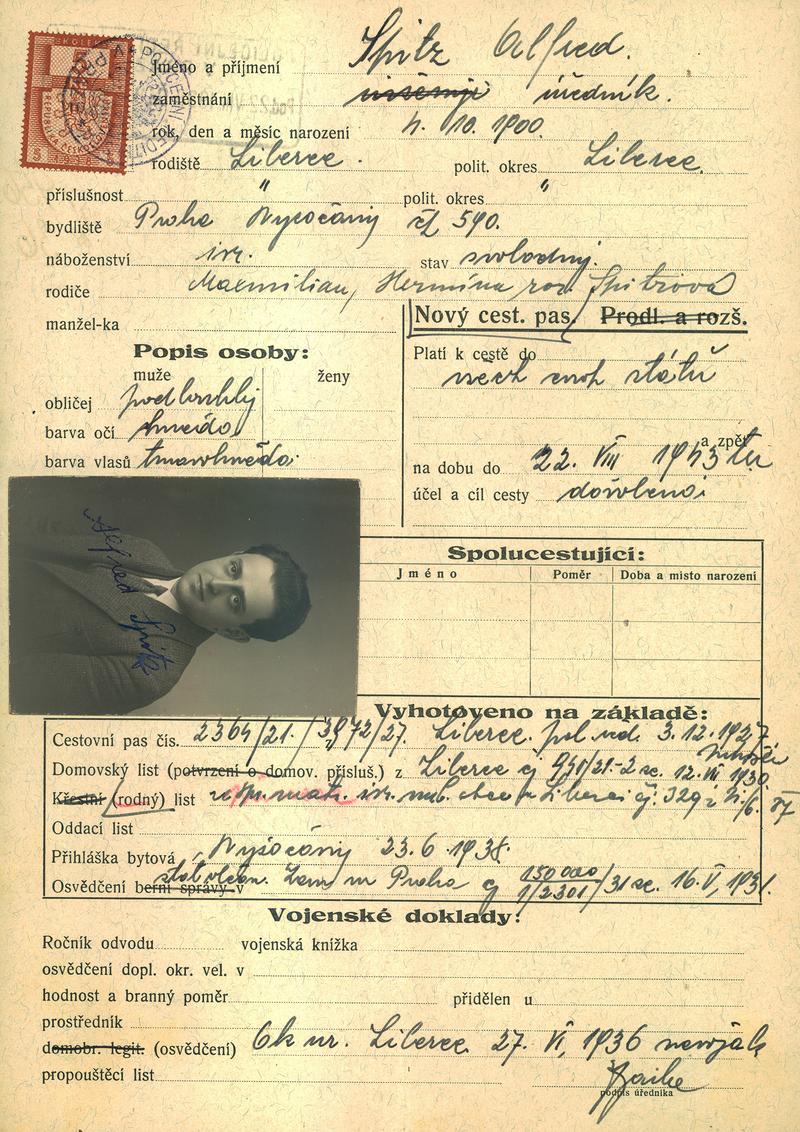 Jméno a příjmení Spitz Alfred.
zaměstnání úředník.
rok, den a měsíc narození 4. 10. 1900.
rodiště Liberec. polit. okres Liberec.
příslušnost " polit. okres "
bydliště Praha Vysočany čp 590.
náboženství isr. stav svobodný.
rodiče Maxmilian, Hermína roz. Spitzová
manžel-ka
Nový cest. pas. Prodl. a rozš.
Popis osoby:
muže ženy
obličej podlouhlý
barva očí hnědá
barva vlasů tmavohnědá
Platí k cestě do
všech států
a zpět
na dobu do 22. VIII 1943
účel a cíl cesty dovolená
Alfred Spitz
Spolucestující:
Jméno Poměr Doba a místo narození
Vyhotoveno na základě:
Cestovní pas čís. 2364/21. / 3972/27. Liberec. pol. řed. 3. 12. 1927.
Domovský list (potvrzení o domov. přísluš.) z Liberec čj 941/21-2 ze 12. VI 1930.
Křestní (rodný) list matr. isr. náb. obce v Liberci čj. 329
Oddací list
Přihláška bytová Vysočany 23. 6. 1938.
Osvědčení berní správy v Praha čj 150000/1/2301/31 ze 16. V, 1931.
Vojenské doklady:
Ročník odvodu vojenská knížka
osvědčení dopl. okr. vel. v
hodnost a branný poměr přidělen u
prostředník
domobr. legit. (osvědčení) Liberec 27. VI, 1936
propouštěcí list
podpis úředníka